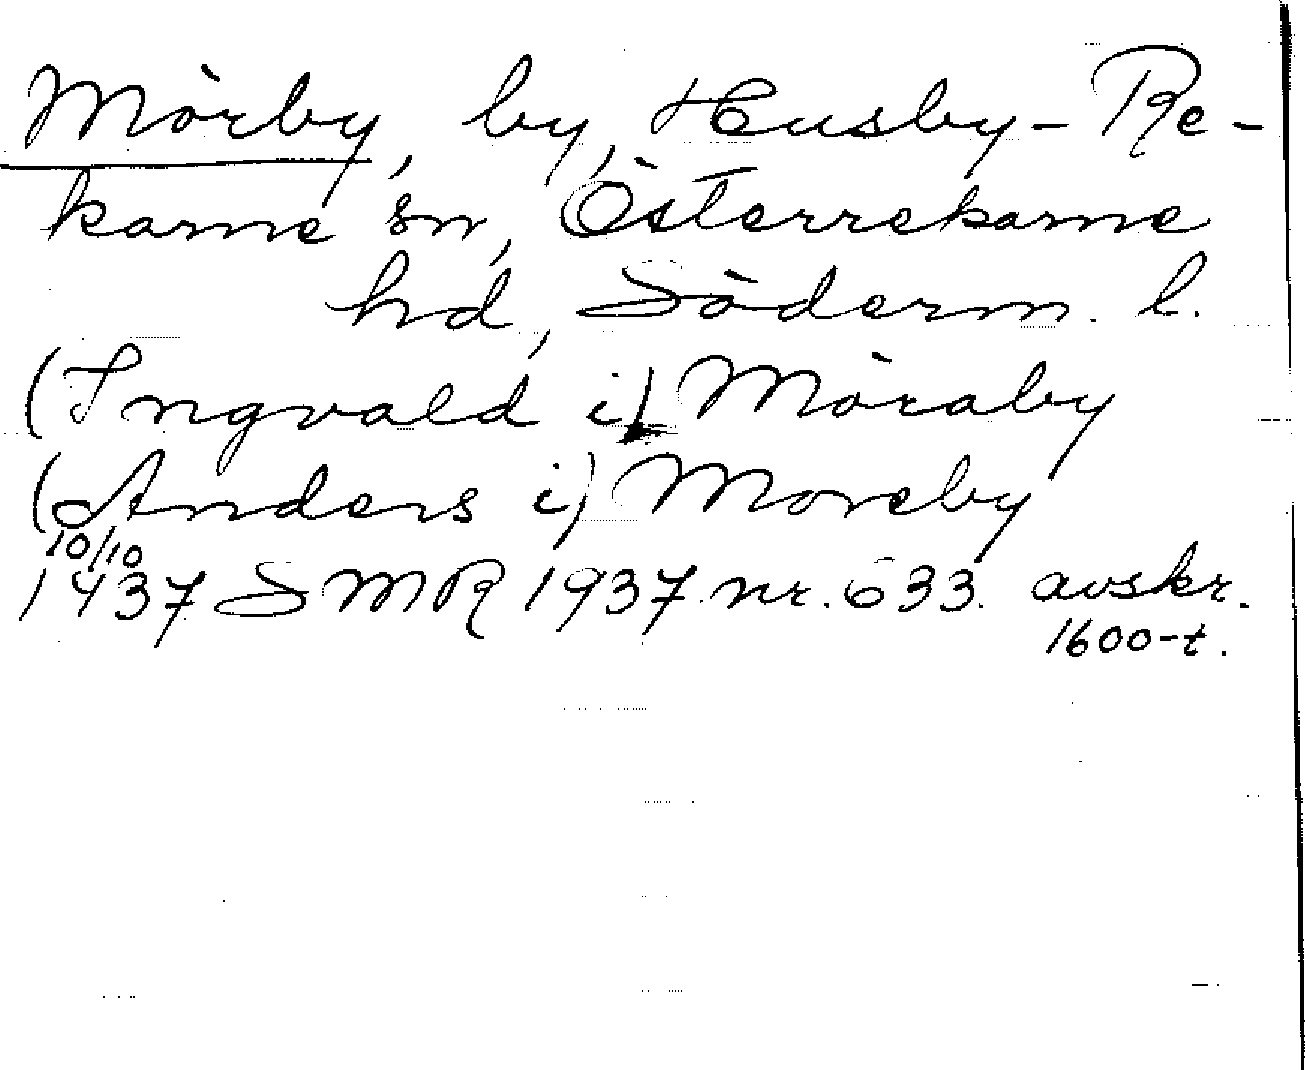 Mörby, by, Husby-Re-
karne sn, Österrekarne
hd, Söderm. l.
(Ingvald i) Möraby
(Anders i) Moreby
10/10
1437 SMR 1937 nr. 633. avskr.
1600-t.